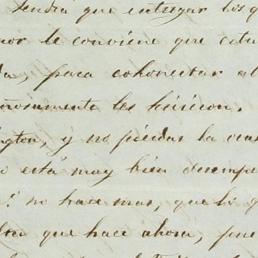 tendria que entregar los g
nor le conviene que esta
da, para cohonestar al
ñosamente les hicieron.
ngton, y no pierdas la oca
o está muy bien desempe
no hace mas, que lo q
lo que hace ahora, pue